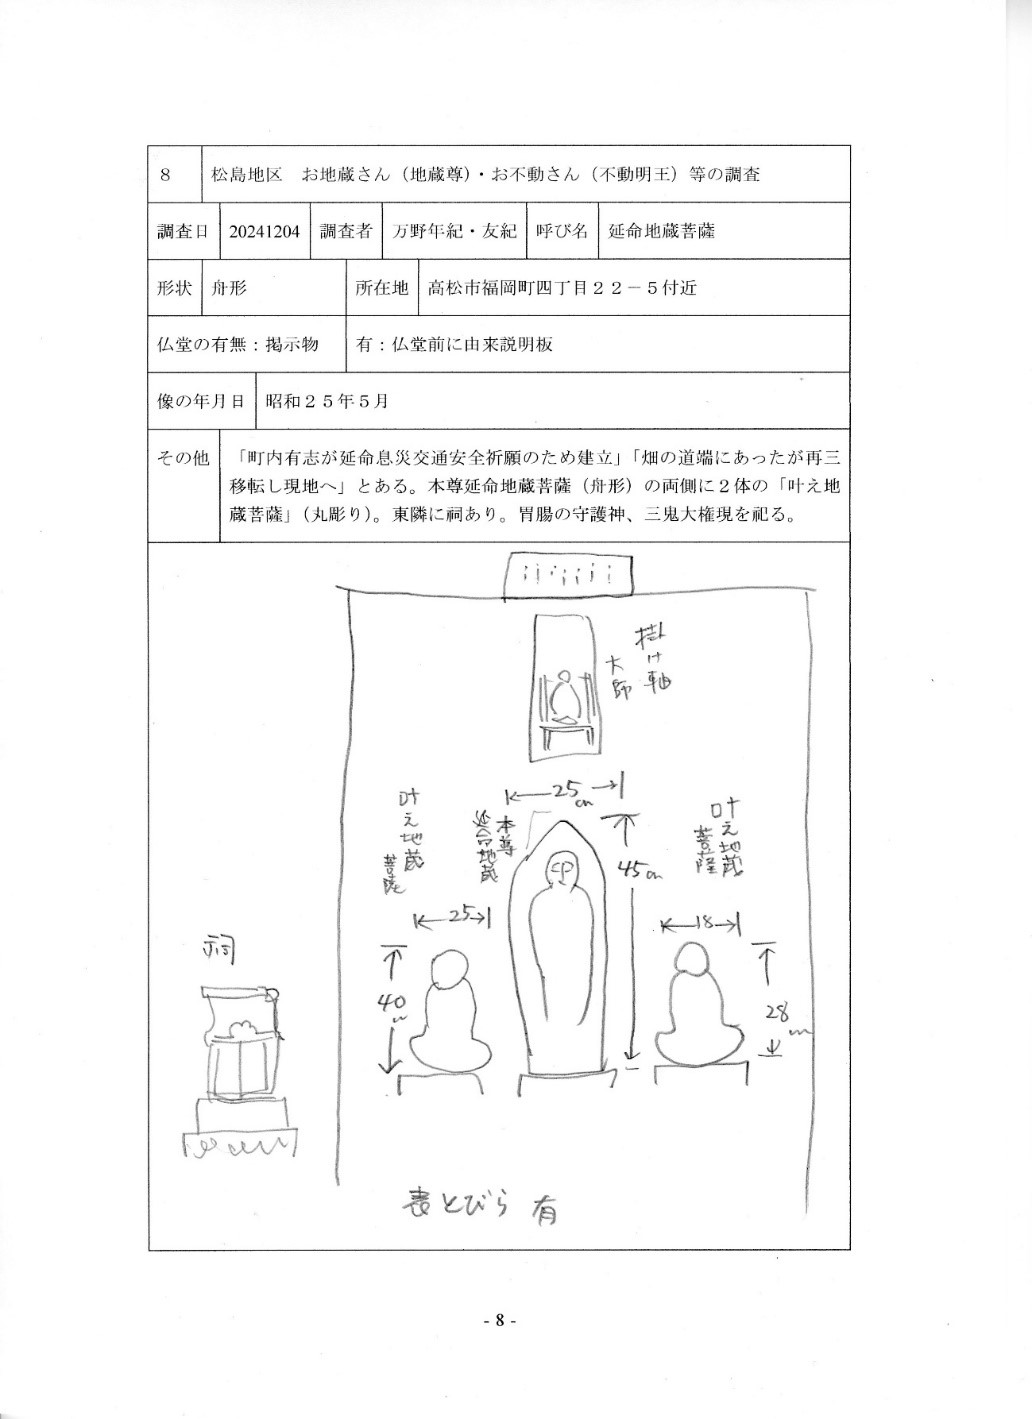 8 松島地区　お地蔵さん（地蔵尊）・お不動さん（不動明王）等の調査
調査日 20241204 調査者 万野年紀・友紀 呼び名 延命地蔵菩薩
形状 舟形 所在地 高松市福岡町四丁目２２－５付近
仏堂の有無：掲示物 有：仏堂前に由来説明板
像の年月日 昭和２５年５月
その他 「町内有志が延命息災交通安全祈願のため建立」「畑の道端にあったが再三
移転し現地へ」とある。本尊延命地蔵菩薩（舟形）の両側に２体の「叶え地
蔵菩薩」（丸彫り）。東隣に祠あり。胃腸の守護神、三鬼大権現を祀る。
掛け軸
大師
25cm
叶え地蔵
菩薩
本尊
延命地蔵
45cm
叶え地蔵
菩薩
25
18
祠
40cm
28cm
表とびら 有
- 8 -